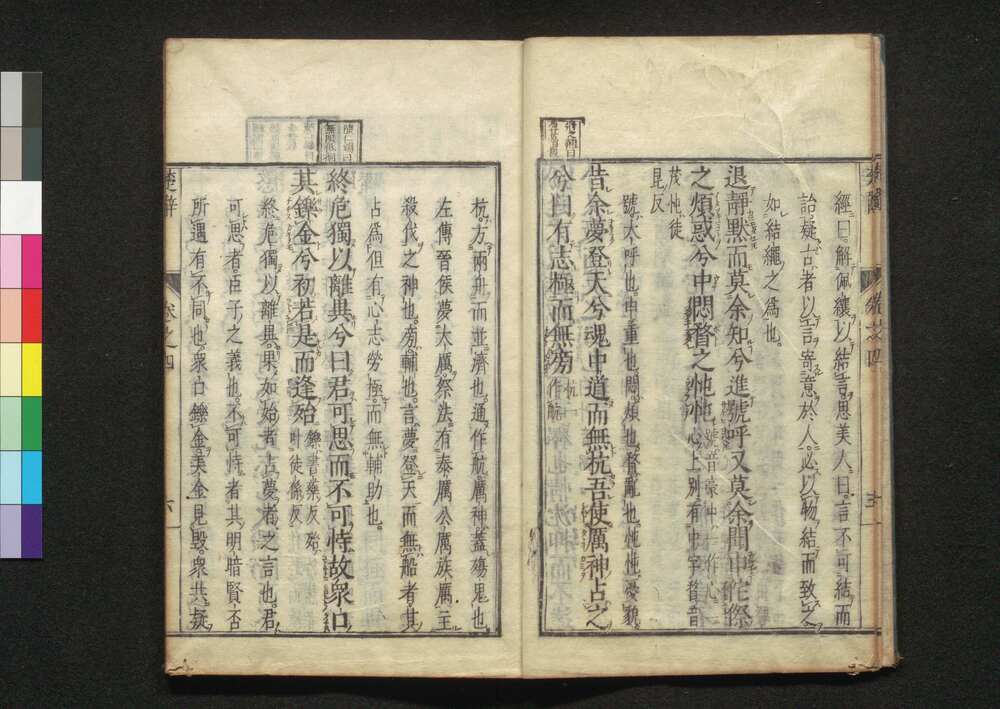 經曰解佩纕以結言思美人曰言不可結而
詒疑古者以言寄意於人必以物結而致之
如結繩之為也
退靜默而莫余知兮進號呼又莫余聞申侘傺
之煩惑兮中悶瞀之忳忳
心上別有中字瞀音
茂忳徒
昆反
號大呼也申重也悶煩也瞀亂也忳忳憂貌
昔余夢登天兮魂中道而無杭吾使厲神占之
兮曰有志極而無旁
杭一
作航
杭方兩舟而並濟也通作航厲神蓋殤鬼也
左傳晉侯夢大厲祭法有泰厲公厲族厲主
殺伐之神也旁輔也言夢登天而無船者其
占為但有心志勞極而無輔助也
終危獨以離異兮曰君可思而不可恃故衆口
其鑠金兮初若是而逢殆
鑠書藥反殆
叶徒係反
終危獨以離異果如始者占夢者之言也君
可思者臣子之義也不可恃者其明暗賢否
所遇有不同也衆口鑠金美金見毀衆共疑
楚辭
卷之四
六